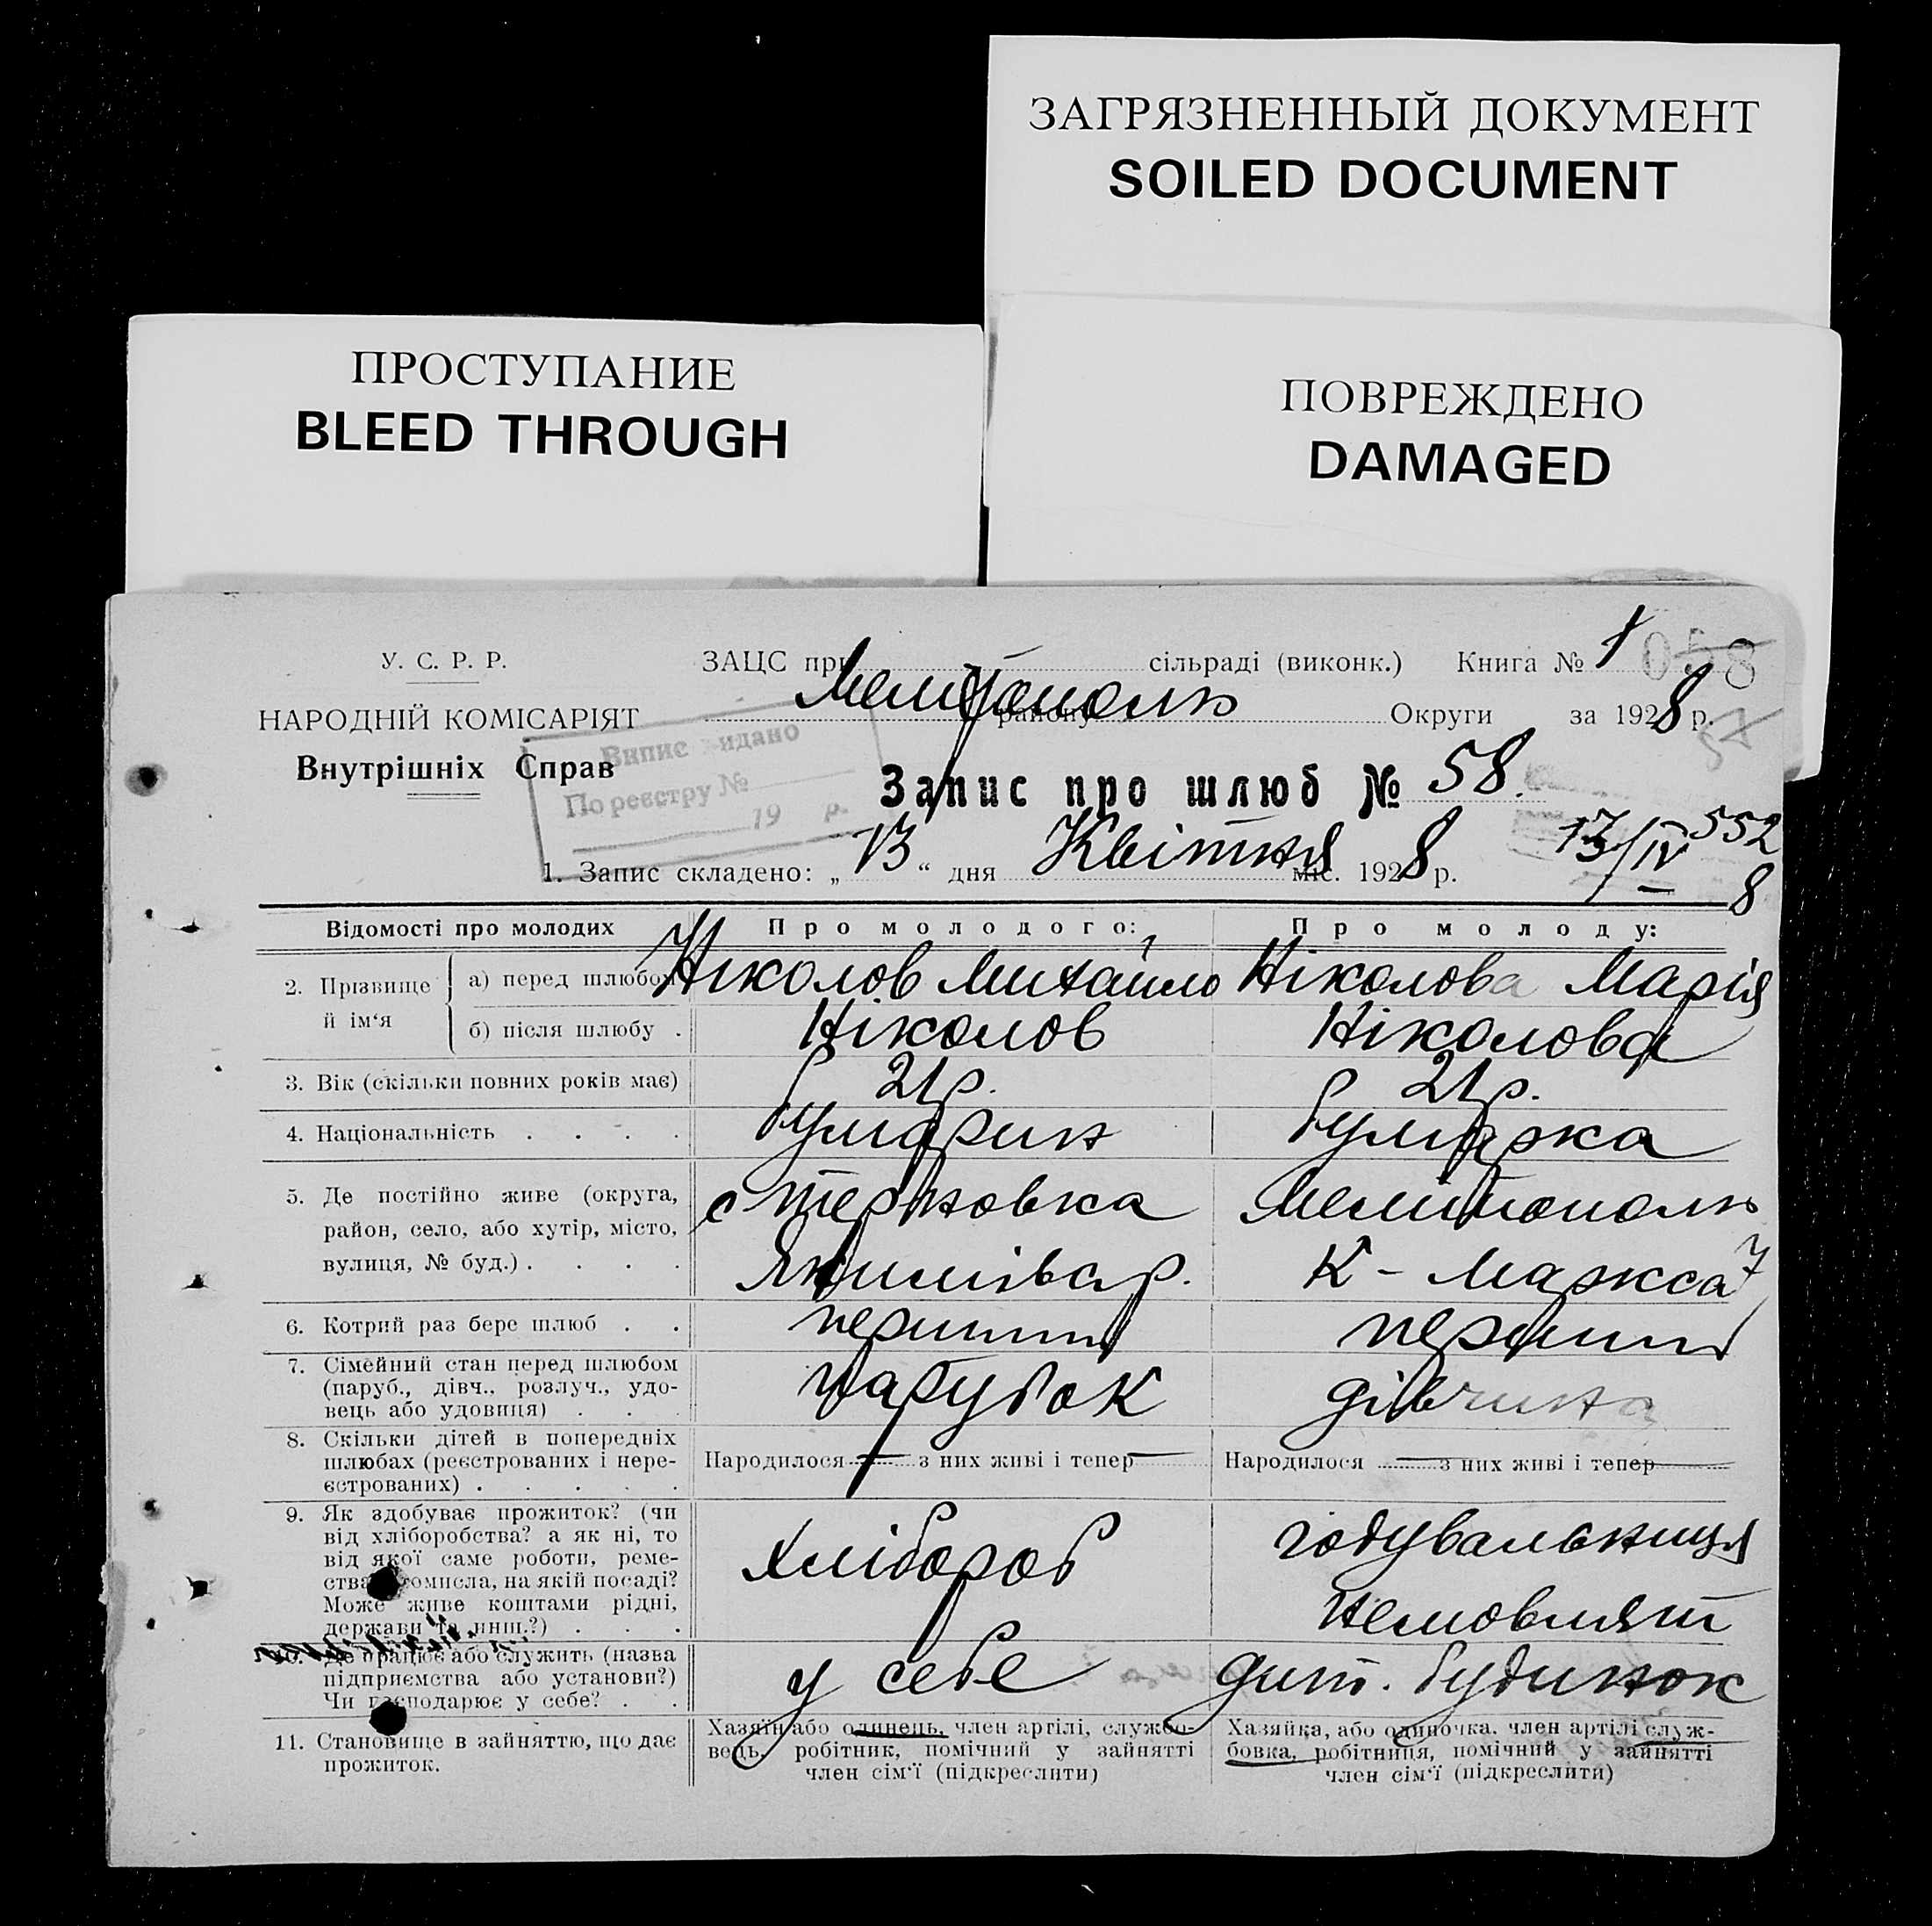 ЗАГРЯЗНЕННЫЙ ДОКУМЕНТ
SOILED DOCUMENT
ПРОСТУПАНИЕ
BLEED THROUGH
ПОВРЕЖДЕНО
DAMAGED
У. С. Р. Р.
НАРОДНІЙ КОМІСАРІЯТ
Внутрішніх Справ
ЗАЦС при сільраді (виконк.) Книга № 1 058
Мелітополь району Округи за 1928 р.
Випис видано
По реєстру №
19 р.
Запис про шлюб № 58.
1. Запис складено: „13“ дня Квітня міс. 1928 р.
13/IV 8 552
Відомості про молодих Про молодого: Про молоду:
2. Прізвище й ім‘я а) перед шлюбом Ніколов Михайло Ніколова Марія
б) після шлюбу . Ніколов Ніколова
3. Вік (скільки повних років має) 21 р. 21 р.
4. Національність . . . . булгарин булгарка
5. Де постійно живе (округа, с Терновка Мелітополь
район, село, або хутір, місто,
вулиця, № буд.) . . . . Якимівск р. К - Маркса 7
6. Котрий раз бере шлюб . . перший перший
7. Сімейний стан перед шлюбом
(паруб., дівч., розлуч., удо- парубок дівчина
вець або удовиця) . . .
8. Скільки дітей в попередніх
шлюбах (реєстрованих і нере- Народилося — з них живі і тепер — Народилося — з них живі і тепер —
єстрованих) . . . . .
9. Як здобуває прожиток? (чи
від хліборобства? а як ні, то годувальниця
від якої саме роботи, реме- Хлібороб
ства, промисла, на якій посаді?
Може живе коштами рідні, немовлят
держави та инш.?) . . .
10. Де працює або служить (назва
підприємства або установи?) у себе дит. будинок
Чи господарює у себе? . .
11. Становище в зайняттю, що дає Хазяїн або одинець, член артілі, службо- Хазяйка, або одиночка. член артілі служ-
прожиток. вець, робітник, помічний у зайнятті бовка, робітниця, помічний у зайнятті
член сім‘ї (підкреслити) член сім‘ї (підкреслити)